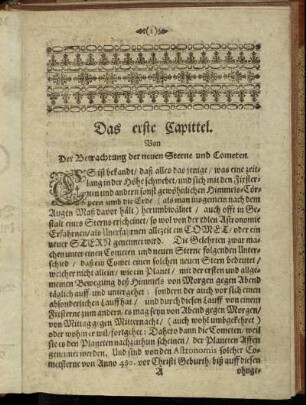 (1)
Das erste Capittel.
Von
Der Betrachtung der neuen Sterne und Cometen.
ES ist bekandt / daß alles das jenige / was eine zeit
lang in der Höhe schwebet / und sich mit den Firster-
nen und andern sonst gewöhnlichen Himmels-Cör-
pern umb die Erde (als man ins gemein nach dem
Augen Maß davor hält) herumbwältzet / auch offt in Ge-
stalt eines Sterns erscheinet / so wol von der edlen Astronomie
Erfahrnen / als Unerfahrnen allezeit ein COMET / oder ein
neuer STERN genennet wird. Die Gelehrten zwar ma-
chen unter einen Cometen und neuen Sterne folgenden Unter-
schied / daß ein Comet einen solchen neuen Stern bedeutet /
welcher nicht allein / wie ein Planet / mit der ersten und allge-
meinen Bewegung deß Himmels von Morgen gegen Abend
täglich auff- und untergehet: sondern der auch vor sich einen
absonderlichen Lauff hat / und durch diesen Lauff von einem
Firsterne zum andern / es mag seyn von Abend gegen Morgen /
von Mittag gegen Mitternacht / (auch wohl umbgekehret)
oder wohin er wil / fortgehet: Dahero dann die Cometen / weil
sie es den Planeten nachzuthun scheinen / der Planeten Affen
genennet werden. Und sind von den Astronomis solcher Co-
metsterne von Anno 480. vor Christi Geburth / biß auff diesen
A